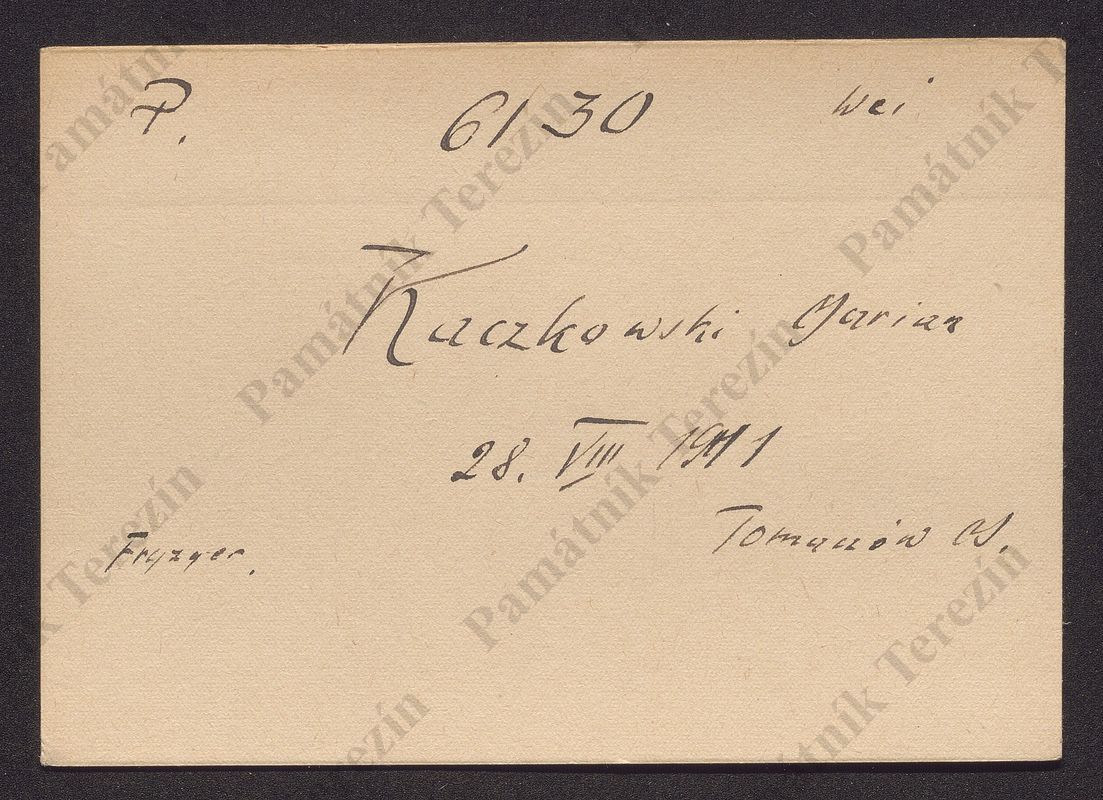 P. 6130 Wei
Kaczkowski Marian
28. VIII 1911
Fryzyer. Tomaszów M.
Památník Terezín
Památník Terezín
Památník Terezín
Památník Terezín
Památník Terezín
Památník Terezín